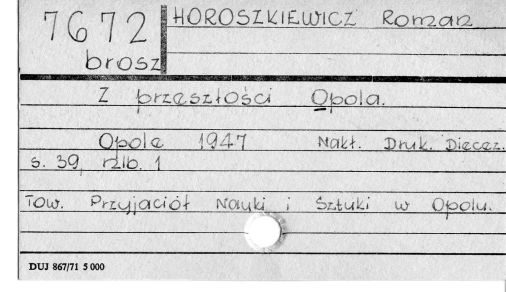 7672
brosz
HOROSZKIEWICZ Roman
Z przeszłości Opola.
Opole 1947 Nakł. Druk. Diecez.
s. 39, nlb. 1
Tow. Przyjaciół Nauki i Sztuki w Opolu.
DUJ 867/71 5 000